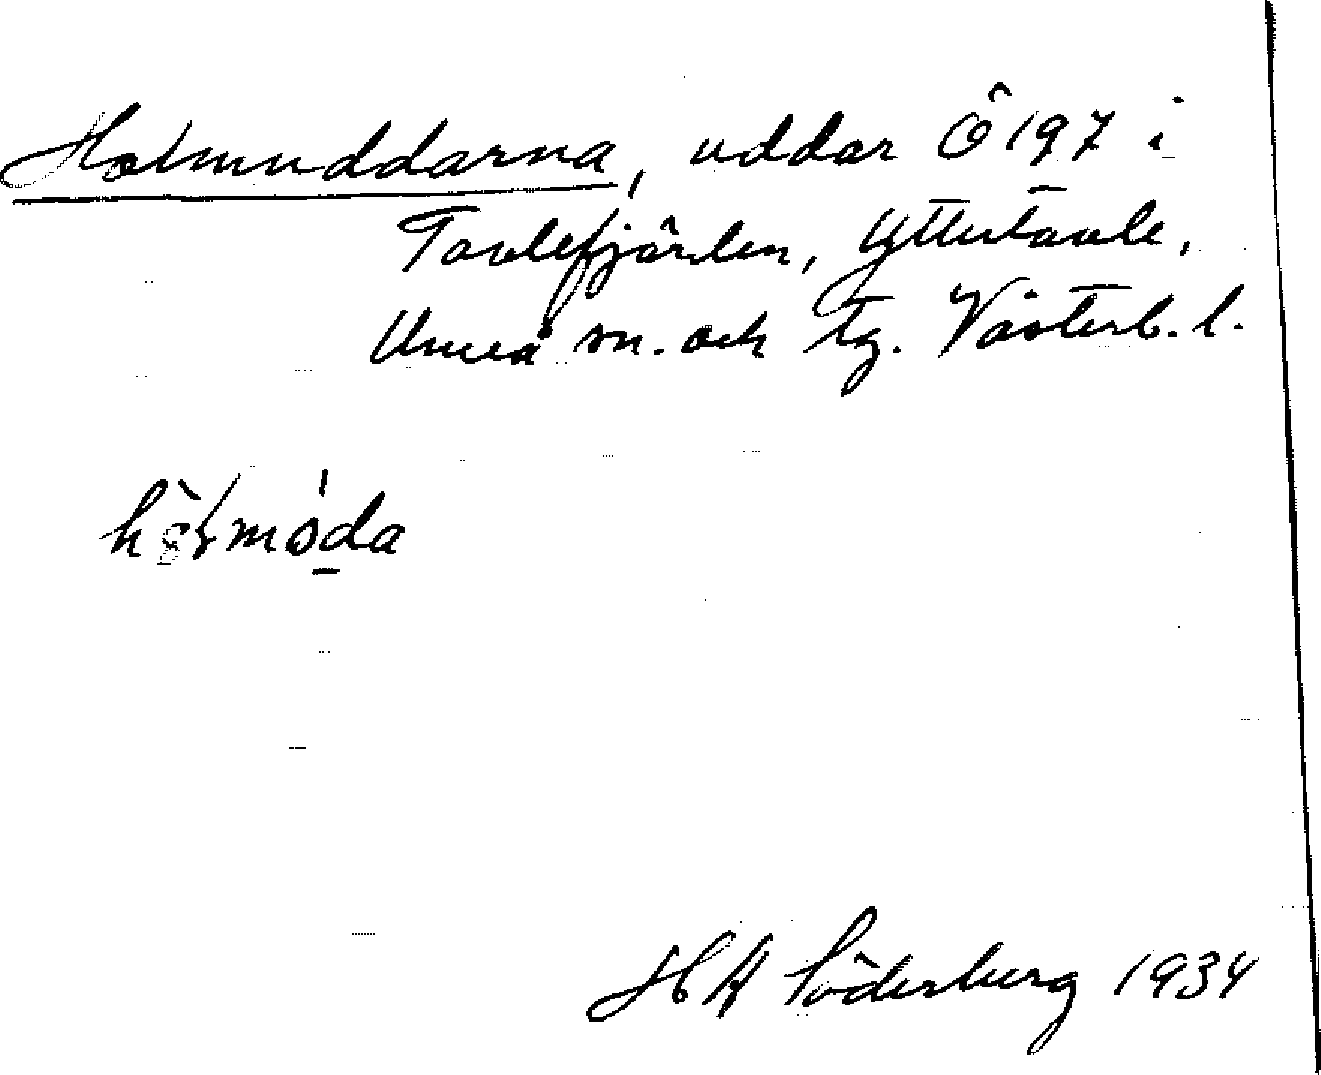 Holmuddarna, uddar Ö 197 i
Tavlefjärden, Yttertavle,
Umeå sn. och tg. Västerb. l.
hò̱lmó̱da
H A Söderberg 1934